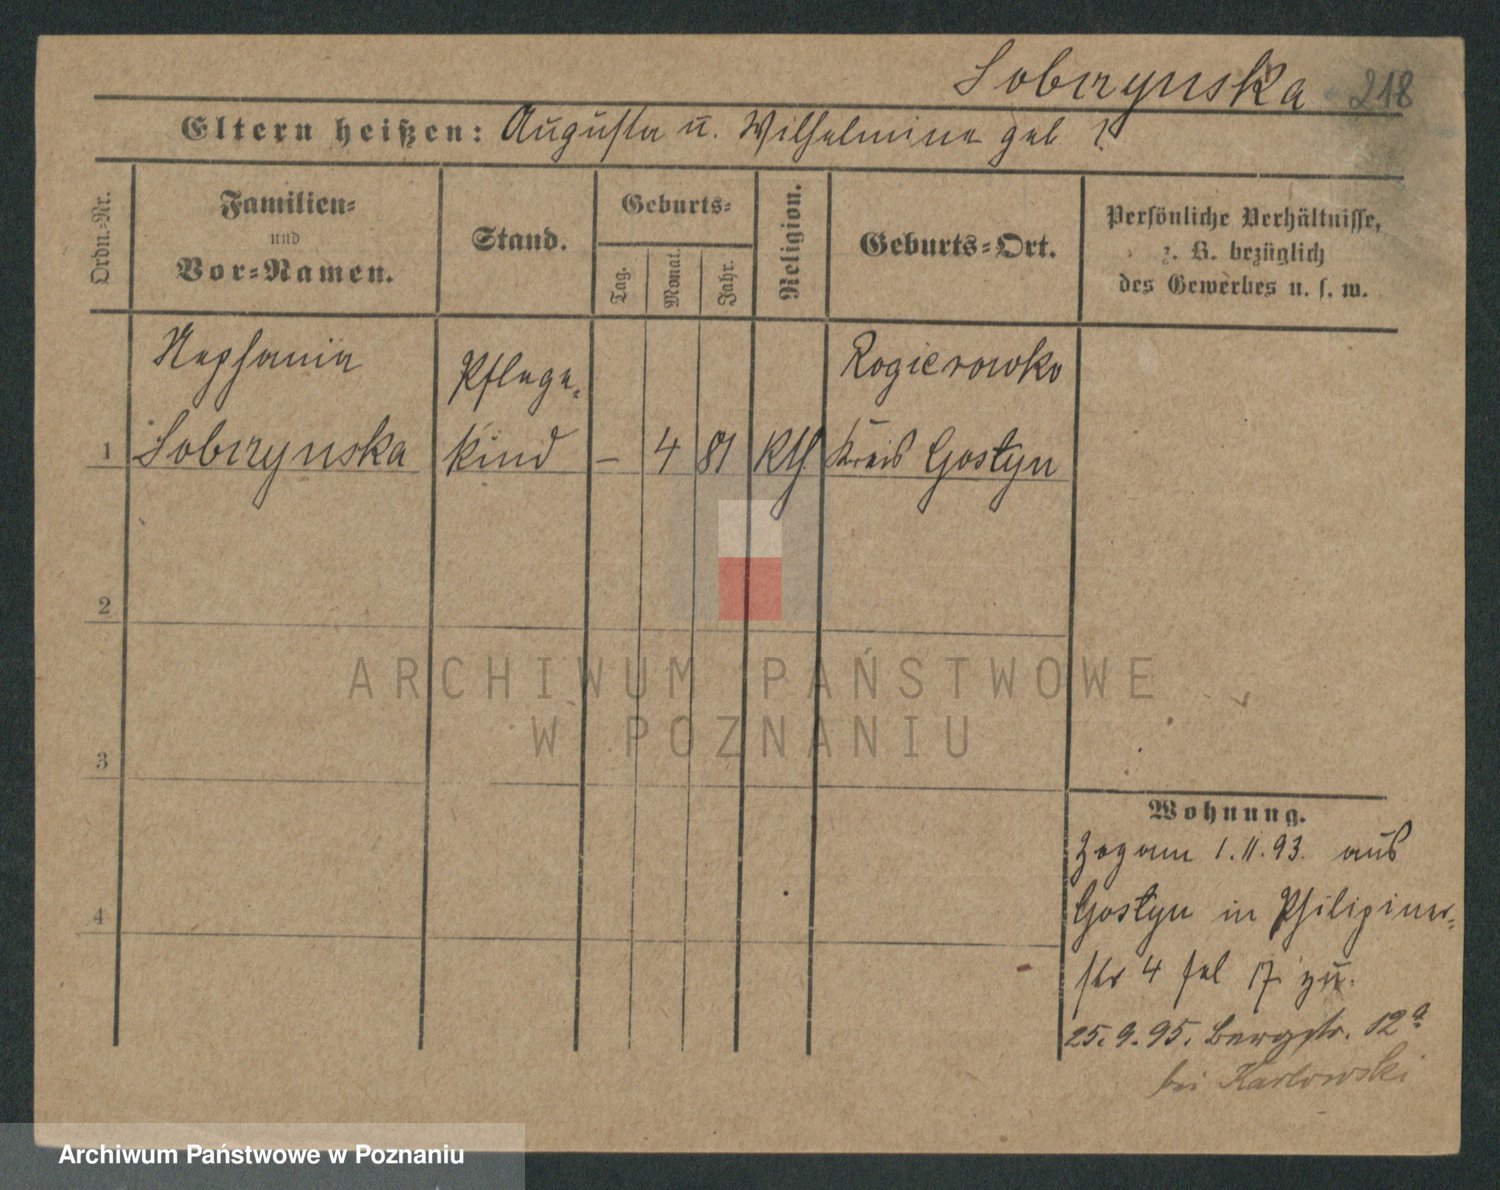 Sobczynska 218
Eltern heißen: Augusta u. Wilhelmine geb ?
Ordn.-Nr.
Familien-
und
Vor-Namen.
Stand.
Geburts-
Tag.
Monat.
Jahr.
Religion.
Geburts-Ort.
Persönliche Verhältnisse,
z. B. bezüglich
des Gewerbes u. s. w.
Stephania
Pflege-
Rogierowko
1 Sobczynska kind – 4 81 Kth Kreis Gostyn
2
3
4
Wohnung.
Zog am 1.11.93. aus
Gostyn in Philipiner-
str 4 17 zu.
25.9.95. Bergstr. 12a
bei Karlowski
ARCHIWUM PAŃSTWOWE
W POZNANIU
Archiwum Państwowe w Poznaniu